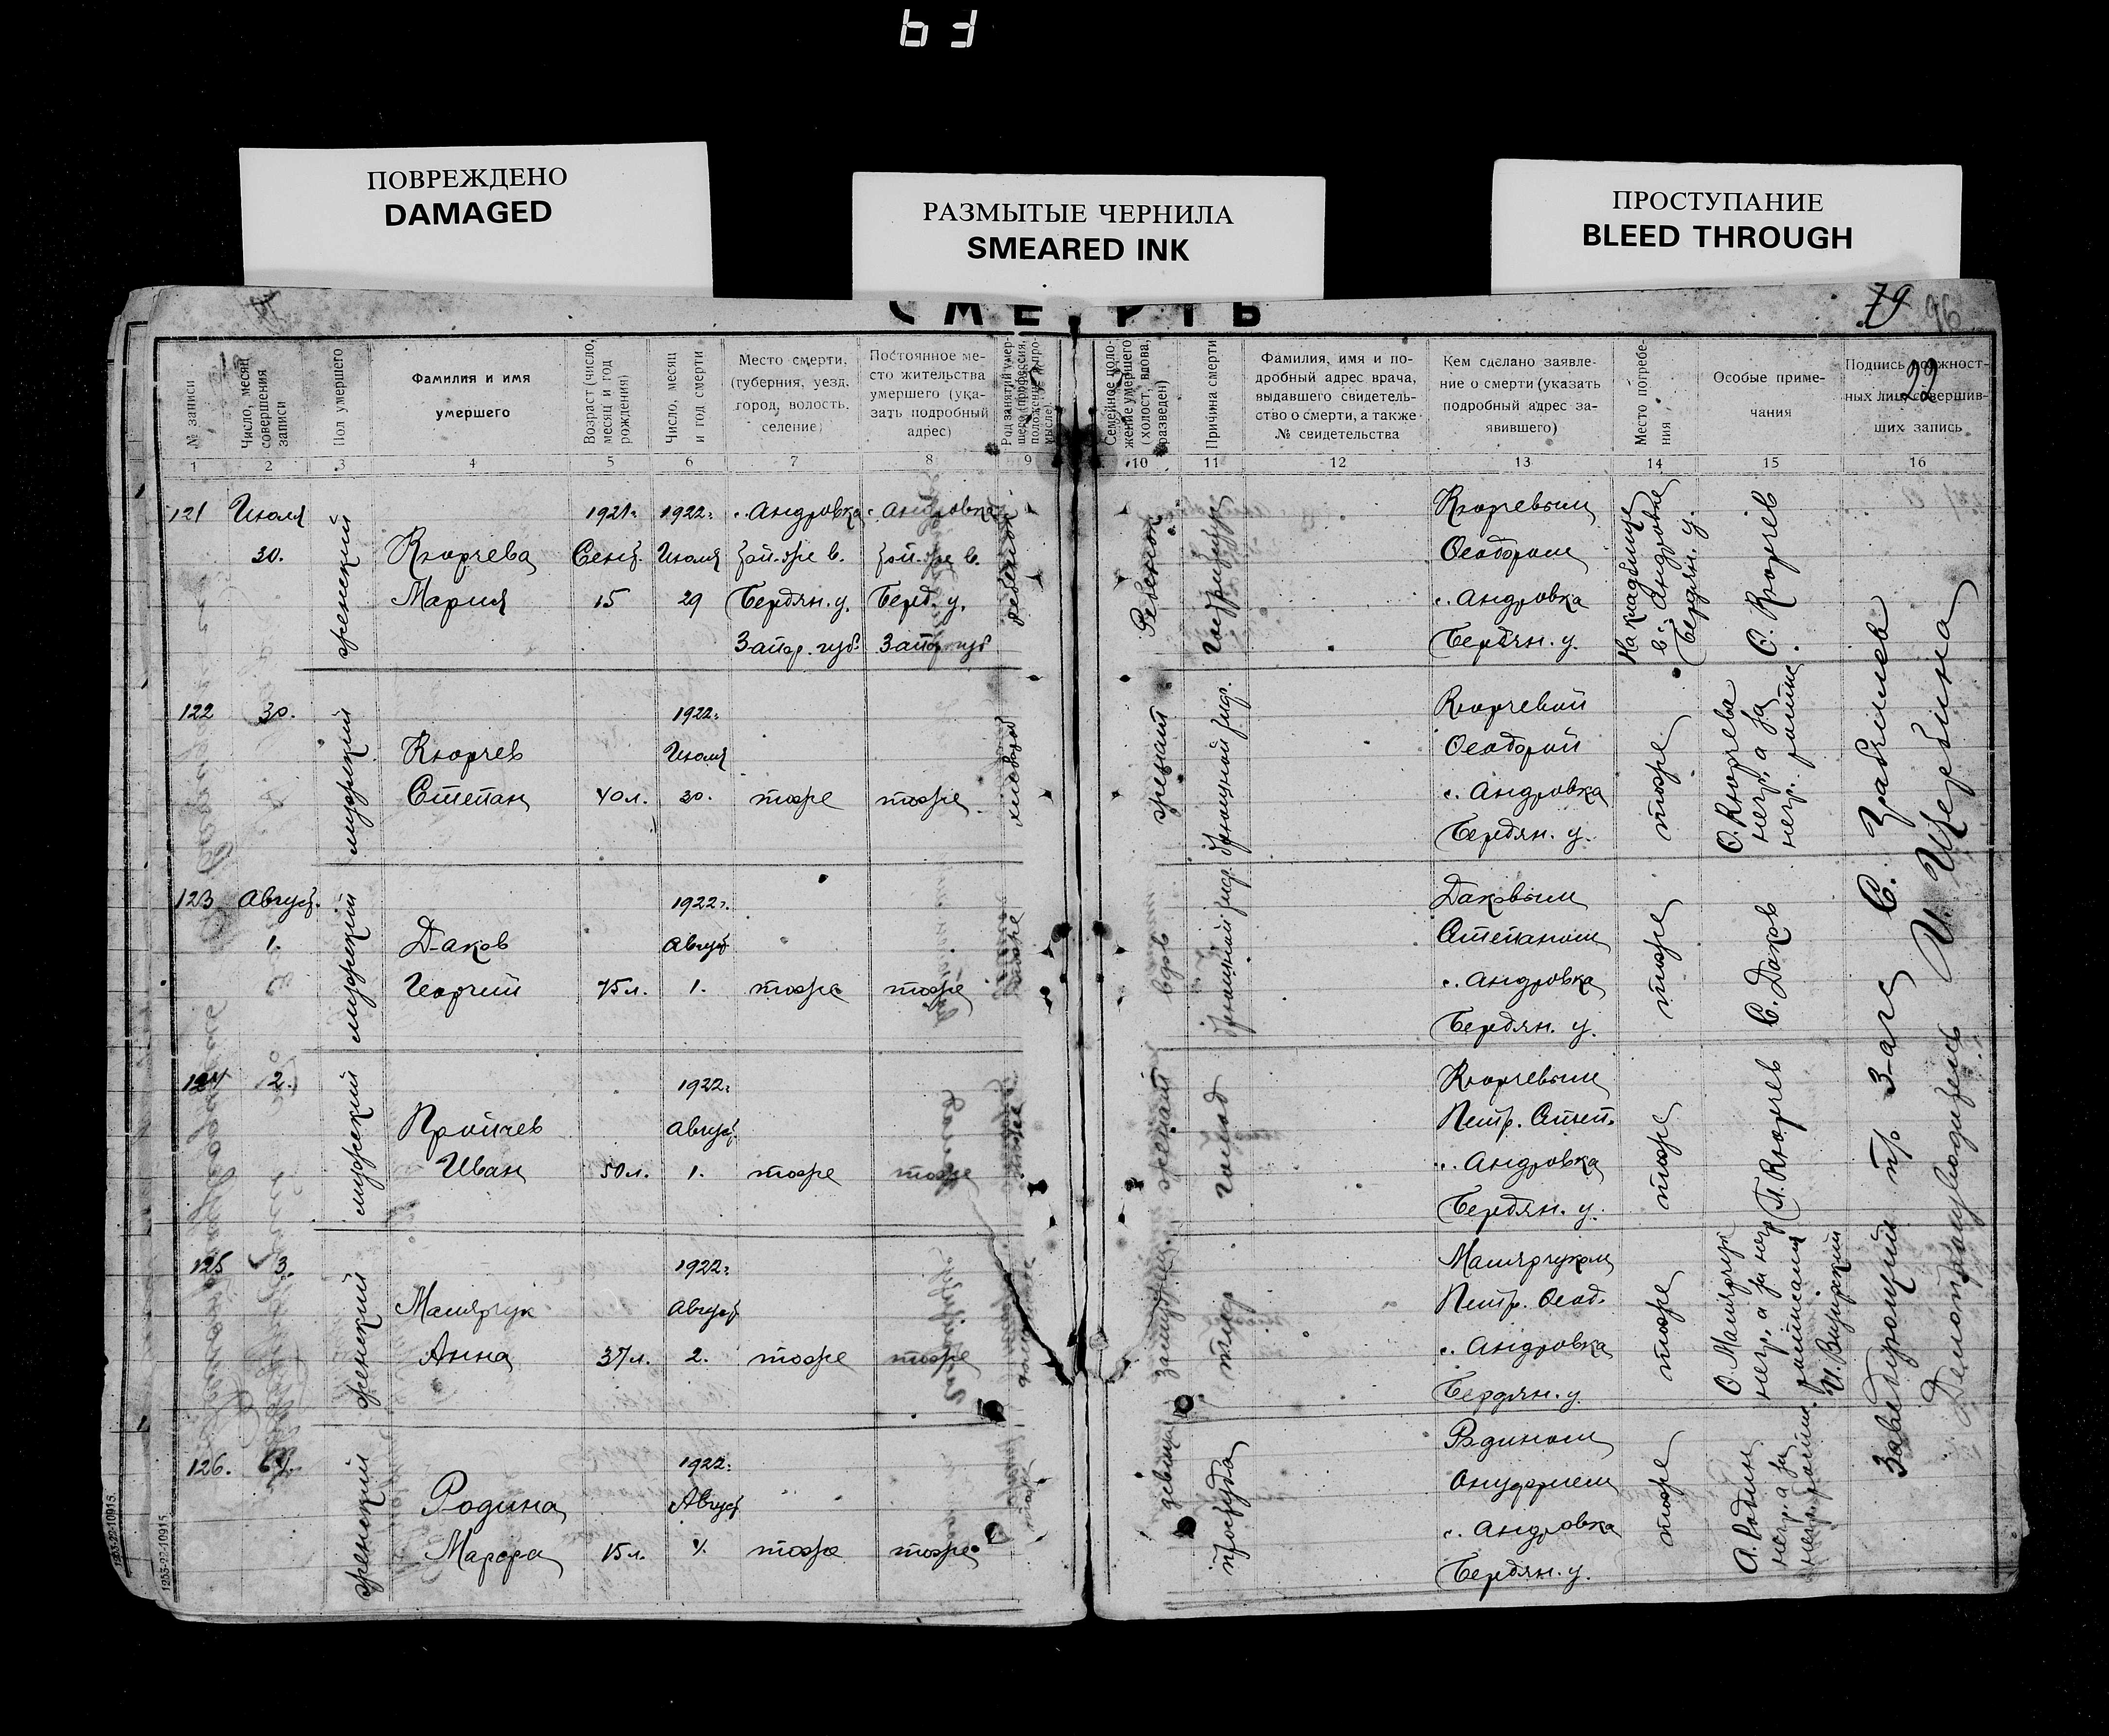 ПОВРЕЖДЕНО
DAMAGED
РАЗМЫТЫЕ ЧЕРНИЛА
SMEARED INK
ПРОСТУПАНИЕ
BLEED THROUGH
СМЕРТЬ
79
96
22
№ записи
Число, месяц
совершения
записи
Пол умершего
Фамилия и имя
умершего
Возраст (число,
месяц и год
рождения)
Число, месяц
и год смерти
Место смерти,
(губерния, уезд,
город, волость,
селение)
Постоянное ме-
сто жительства
умершего (ука-
зать подробный
адрес)
Род занятий умер-
шего (профессия,
положение в про-
мысле)
Семейное поло-
жение умершего
(холост, вдова,
разведен)
Причина смерти
Фамилия, имя и по-
дробный адрес врача,
выдавшего свидетель-
ство о смерти, а также
№ свидетельства
Кем сделано заявле-
ние о смерти (указать
подробный адрес за-
явившего)
Место погребе-
ния
Особые приме-
чания
Подпись должност-
ных лиц, совершив-
ших запись
1 2 3 4 5 6 7 8 9 10 11 12 13 14 15 16
121
Июля
30.
женский
Кюрчева
Мария
1921г.
Сент.
15
1922г.
Июля
29
с. Андровка
той-же в.
Бердян. у.
Запор. губ.
с. Андровка
той-же в.
Берд. у.
Запор. губ
ребенок
Ребенок
Кюрчевым
Феодором
с. Андровка
Бердян. у.
На кладбище
в с. Андровке
Бердян. у.
Ф. Кюрчев
122
30.
мужский
Кюрчев
Степан
40 л.
1922г.
Июля
30.
тоже
тоже
хлебороб
женат
брюшной тиф.
Кюрчевой
Феодорой
с. Андровка
Бердян. у.
тоже
Ф. Кюрчева
негр. а за
негр.
123
Август.
1.
мужский
Даков
Георгий
75 л.
1922г.
Август
1.
тоже
тоже
тоже
вдов
брюшной тиф.
Даковым
Степаном
с. Андровка
Бердян. у.
тоже
С. Даков
124
2.
мужский
Пройчев
Иван
50 л.
1922г.
Август
1.
тоже
тоже
тоже
женат
голод
Кюрчевым
Петр. Степ.
с. Андровка
Бердян. у.
тоже
П. Кюрчев
125
3.
женский
Малярчук
Анна
37 л.
1922г.
Август
2.
тоже
тоже
замужем.
тиф
Малярчуком
Петр. Феод.
с. Андровка
Бердян. у.
тоже
негр. а за негр
126.
4.
женский
Родина
Марфа
15 л.
1922г.
Август
4.
тоже
тоже
девица
простуда
Родиным
Онуфрием
с. Андровка
Бердян. у.
тоже
А. Родин
негр. а за
негр.
Заведующий пр Загс С.
Делопроизводитель И. Щербина
1255-22-10915.